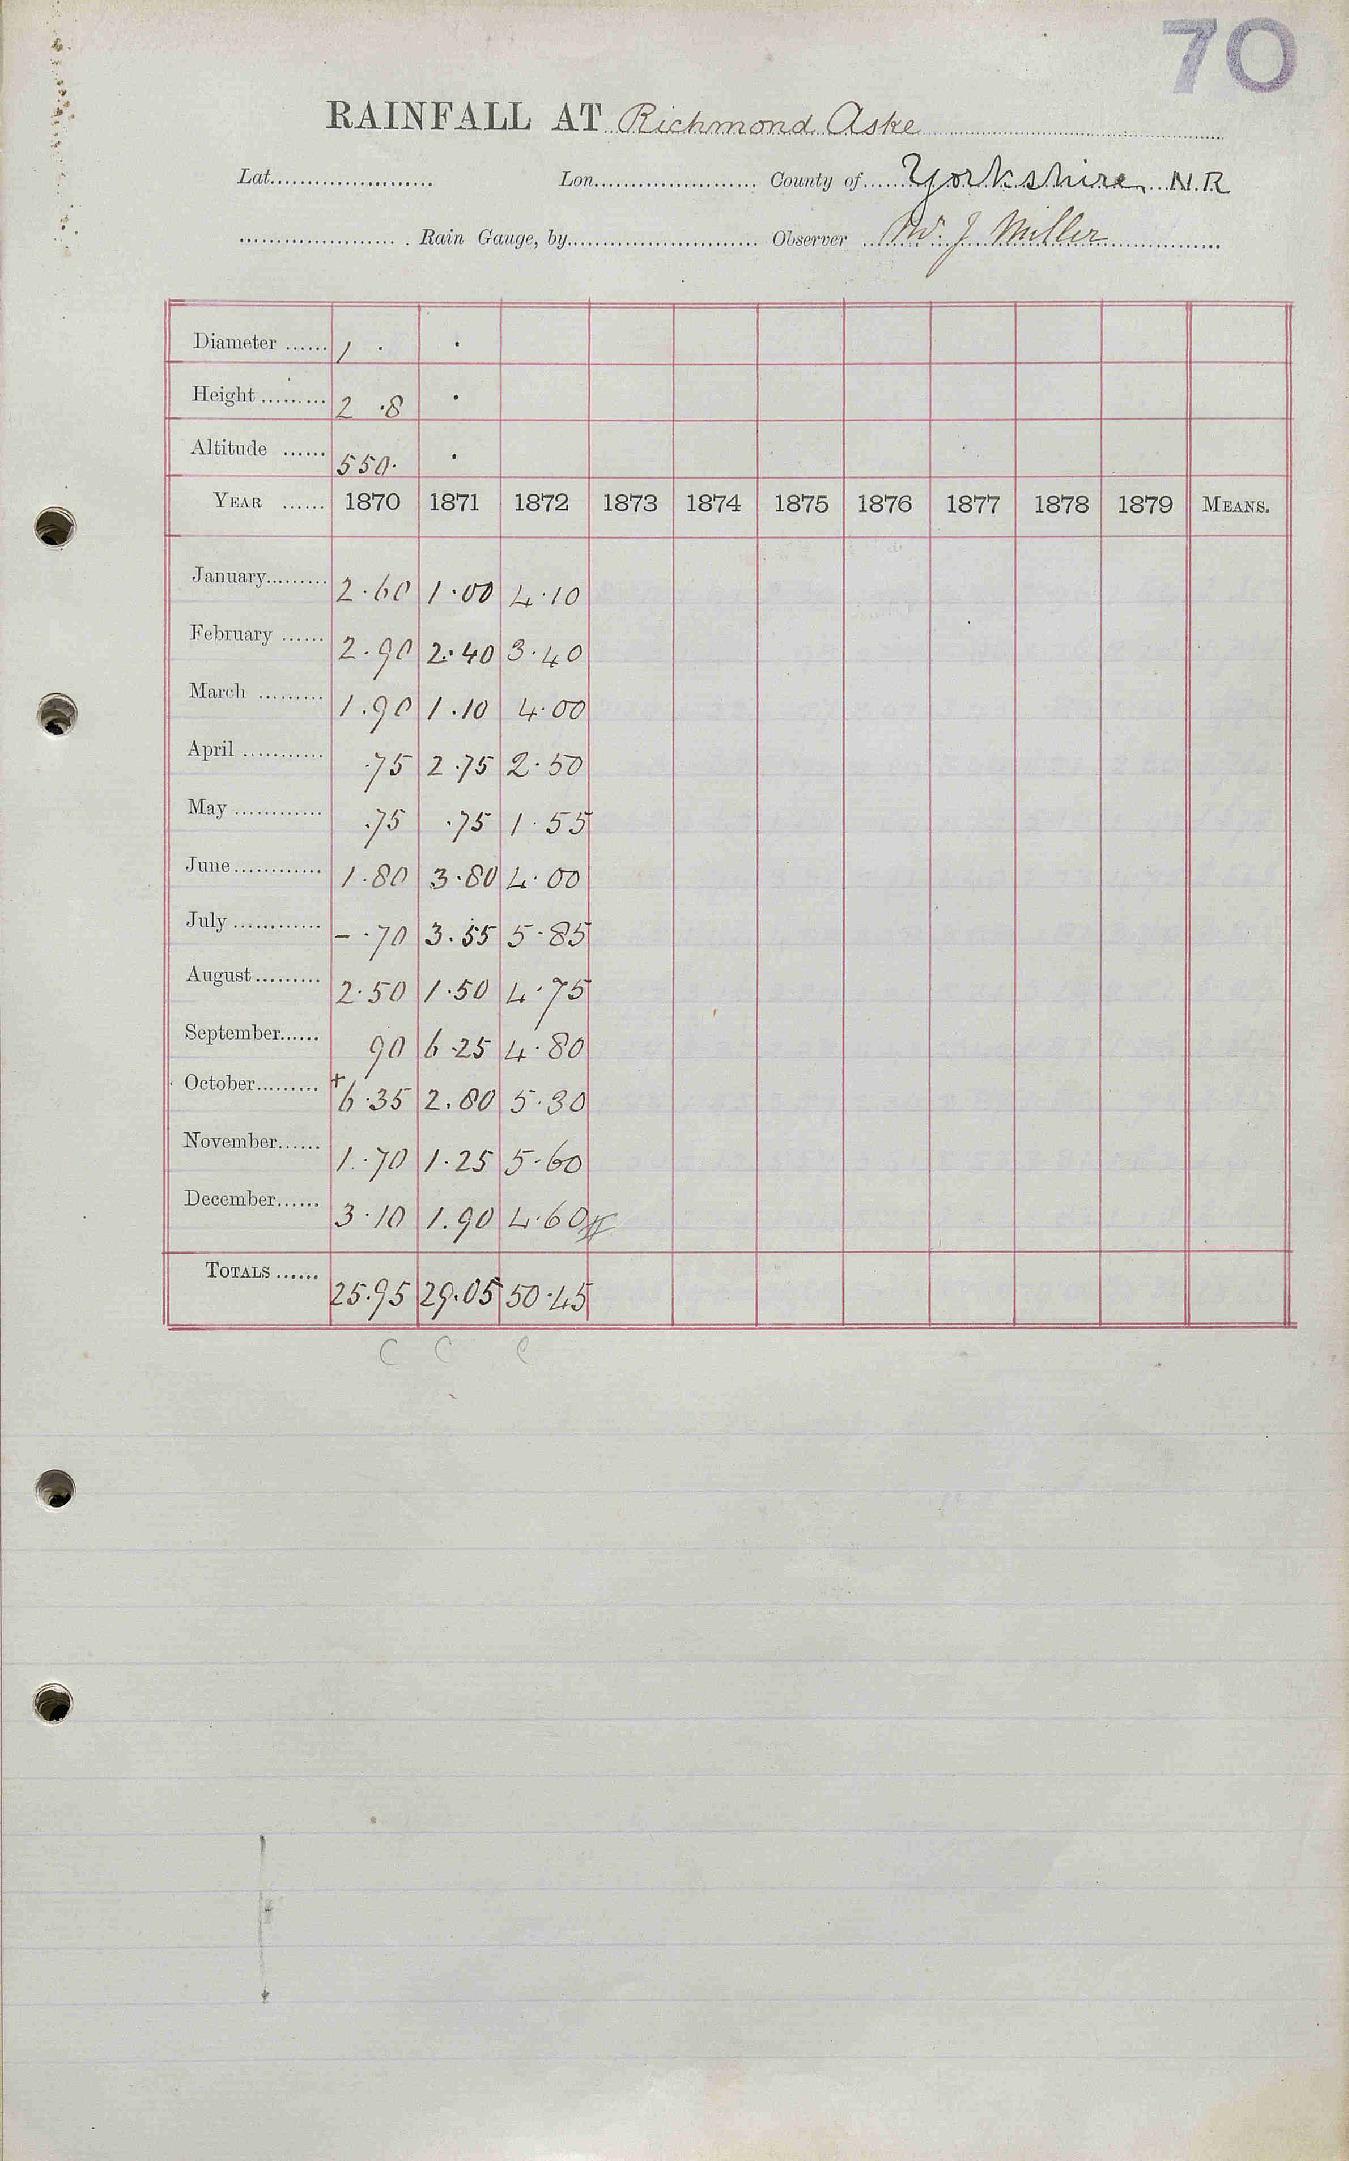 70
RAINFALL AT Richmond Aske
Lat...................... Lon....................... County of...... Yorkshire N.R
...................... Rain Gauge, by.......................... Observer Mr. J Miller
Diameter ...... 1 . .
Height ......... 2 .8 .
Altitude ...... 550. .
YEAR ...... 1870 1871 1872 1873 1874 1875 1876 1877 1878 1879 MEANS.
January......... 2.60 1.00 4.10
February ...... 2.90 2.40 3.40
March ......... 1.90 1.10 4.00
April ........... .75 2.75 2.50
May ............ .75 .75 1.55
June............ 1.80 3.80 4.00
July ............ - .70 3.55 5.85
August......... 2.50 1.50 4.75
September...... 90 6.25 4.80
October......... + 6.35 2.80 5.30
November...... 1.70 1.25 5.60
December...... 3.10 1.90 4.60
TOTALS ...... 25.95 29.05 50.45
C C C